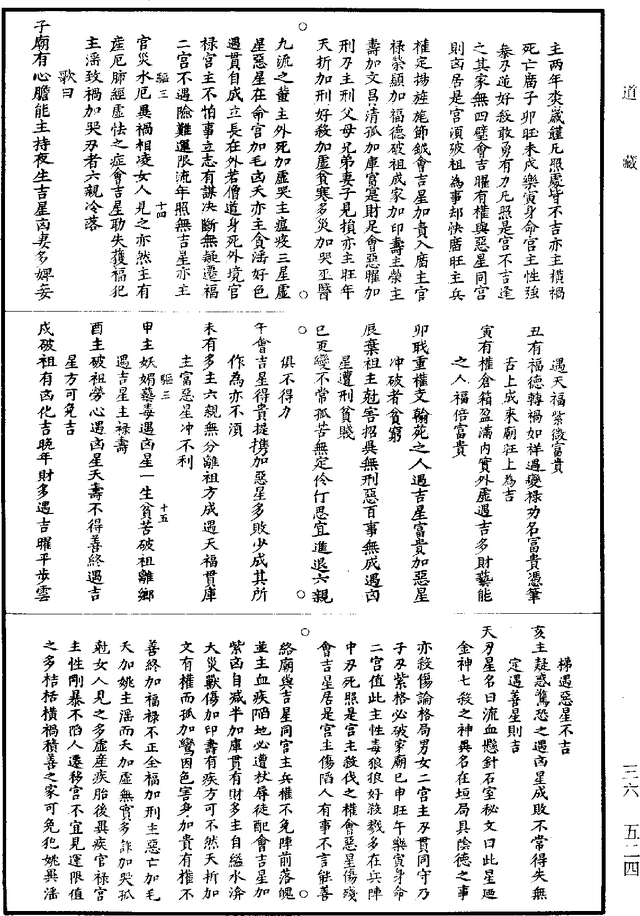 道藏
主两年災歲護凡照處皆不吉亦主橫禍
死亡廣子卯旺未戌樂寅身命宮主性強
暴乃並好殺敢勇有力凡照是宮不吉逢
之其家無四壁會吉曜有權與惡星同宮
則凶居是宮須破祖為事却快廣旺主兵
權定揚旌施節鉞會吉星加貴入廣主官
祿榮顯加福德破祖成家加印壽主榮主
壽加文昌清孤加庫富是財足會惡曜加
刑刃主刑父母兄弟妻子見損亦主旺年
夭折加刑好殺加虛貧寒多災加哭並醫
九流之輩主外死加虛哭主瘟疫三星虛
星惡星在命宮加毛凶夭亦主貪淫好色
遇貫自成立長在外若僧道身死外境官
祿宮主不怕事立志有謀決斷無疑遷福
二宮不遇險難運限流年照無吉星亦主
驅三 十四
官災水厄異禍相凌女人見之亦然主有
產厄肺經虛怯之症會吉星助失獲福犯
主淫致禍加哭刃者六親冷落
歌曰
子廟有心膽能主持夜生吉星凶妻多婢妾
遇天福紫微富貴
丑有福德轉禍如祥遇變祿功名富貴憑筆
舌上成來廟旺上為吉
寅有權倉箱盈滿內實外虛遇吉多財藝能
之人福倍富貴
卯戢重權文翰死之人遇吉星富貴加惡星
冲破者貧窮
辰棄祖主尅害招異無刑惡百事無成遇凶
星遭刑貧賤
巳更變不常孤苦無定伶仃思宜進退六親
俱不得力
午會吉星得貴提携加惡星多敗少成其所
作為亦不須
未有多主六親無分離祖方成遇天福貫庫
主富惡星冲不利
驅三 十五
申主妖媚蠱毒遇凶星一生貧苦破祖離鄉
遇吉星主祿壽
酉主破祖勞心遇凶星夭壽不得善終遇吉
星方可免吉
戌破祖有凶化吉晚年財多遇吉曜平步雲
梯遇惡星不吉
亥主疑惑驚恐之遇凶星成敗不常得失無
定遇善星則吉
天刃星名曰流血懸針石室秘文曰此星迺
金神七殺之神異名在垣局具陰德之事
亦殺傷論格局男女二宮主刃貫同守乃
子刃紫格必破家廟巳申旺午樂寅身命
二宮值此主性毒狼狠好殺戮多在兵陣
中刃死照是宮主殺伐之權會惡星傷殘
會吉星居是宮主傷陷人有事不言能善
絡廟與吉星同宮主兵權不免陣前落魄
並主血疾陷地必遭杖辱徒配會吉星加
紫凶自減半加庫貫有財多主自縊水濟
大災獸傷加印壽有疾方可不然夭折加
文有權而孤加鸞因色害身加貴有權不
善終加福祿不正全福加刑主惡亡加毛
夭加姚主淫而夭加虛無實多詐加哭孤
尅女人見之多虛產疾胎後異疾官祿宮
主性剛暴不陷人遷移宮不宜見運限值
之多桔梏橫禍積善之家可免犯姚異淫
三六 五二四